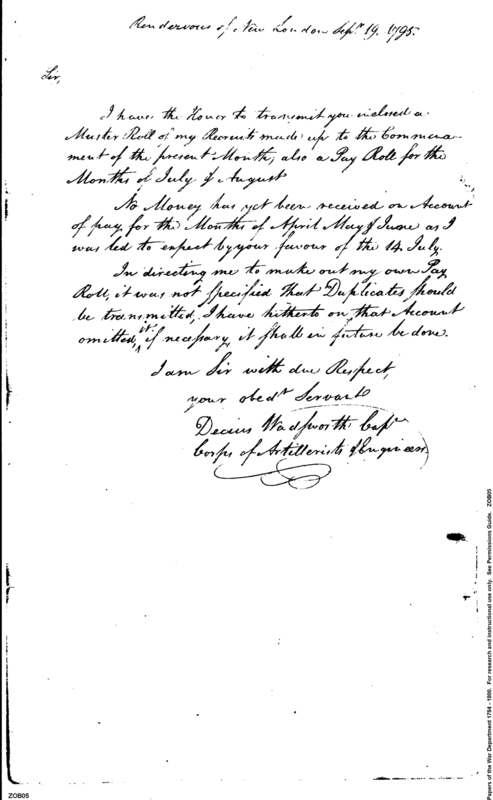 Rendezvous of New London Sepr. 19. 1795.
Sir,
I have the Honor to transmit you inclosed a
Muster Roll of my Recruits made up to the Commence-
ment of the present Month, also a Pay Roll for the
Months of July & August
No Money has yet been received on Account
of pay for the Months of April May & June as I
was led to expect by your favour of the 14 July.
In directing me to make out my own Pay
Roll, it was not specified that Duplicates should
be transmitted, I have hitherto on that Account
omitted it, if necessary, it shall in future be done.
I am Sir with due Respect,
your obedt Servant
Decius Wadsworth Capt
Corps of Artillerists & Engineers
ZOB05
Papers of the War Department 1784 - 1800. For research and instructional use only. See Permissions Guide. ZOB05